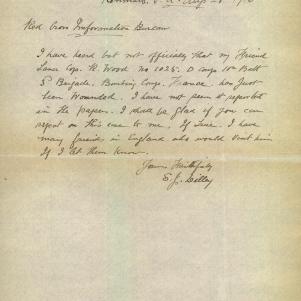 Red Cross Information Bureau
I have heard but not officially that my Friend
Lance Corp. R. Wood No 1025. D Corps 10th Batt
5 Brigade. Bunting Corps. France. has Just
been Wounded. I have not seen it reported
in the papers. I shall be glad if you can
report on this case to me, If True. I have
many friends in England who would visit him
If I let them know.
Yours Faithfully